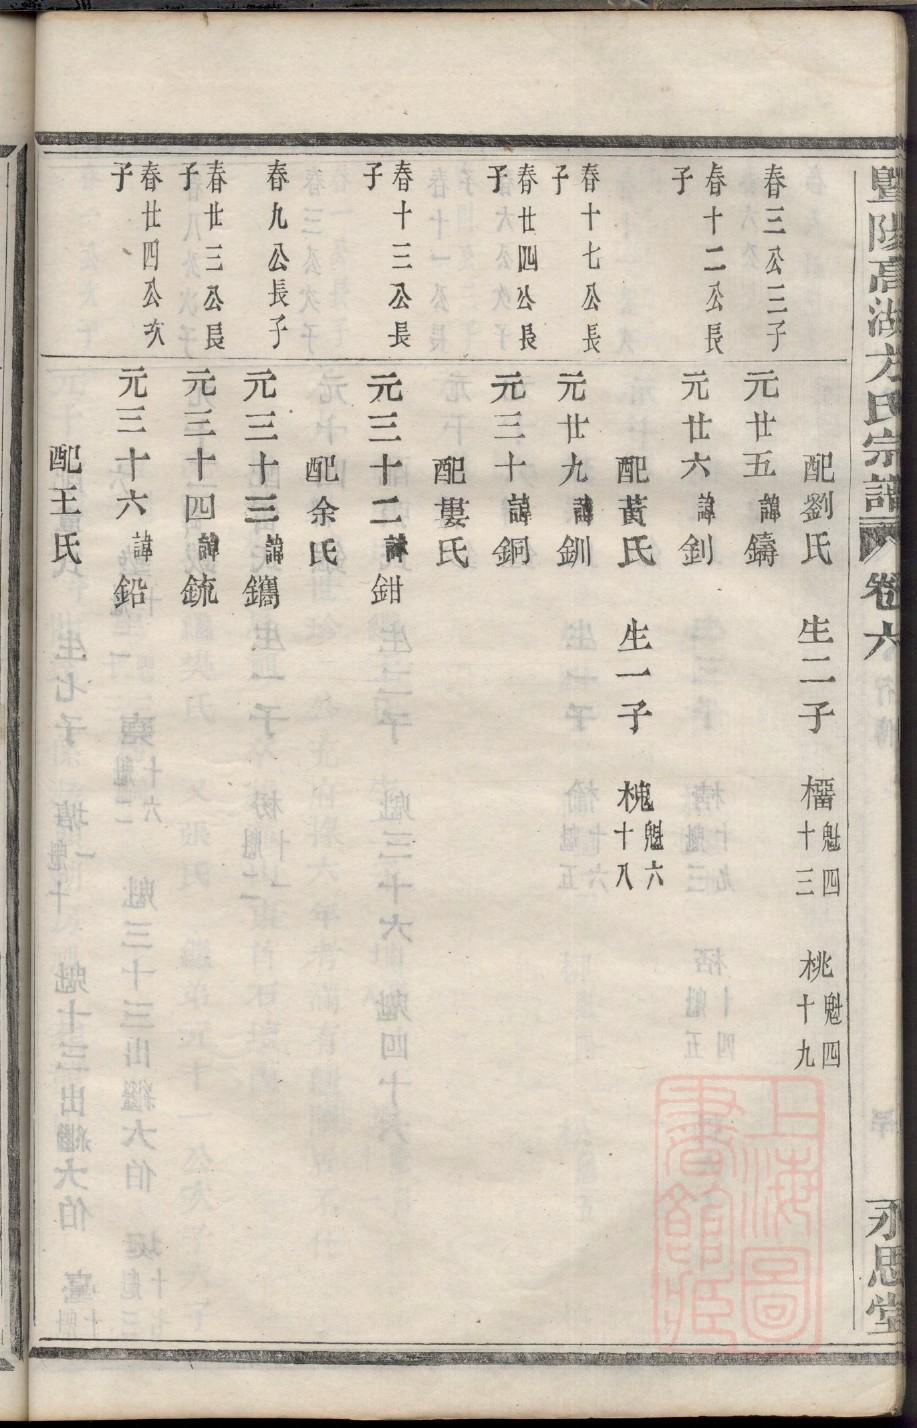 暨陽高湖方氏宗譜 卷六 永思堂
配劉氏 生二子 橊魁四十三 桃魁四十九
春三公三子 元廿五諱鑄
春十二公長子 元廿六諱釗
配黃氏 生一子 槐魁六十八
春十七公長子 元廿九諱釧
春廿四公長子 元三十諱銅
配婁氏
春十三公長子 元三十二諱鉗
配余氏
春九公長子 元三十三諱鑴
春廿三公長子 元三十四諱鋶
春廿四公次子 元三十六諱鉛
配王氏
上海圖書館藏